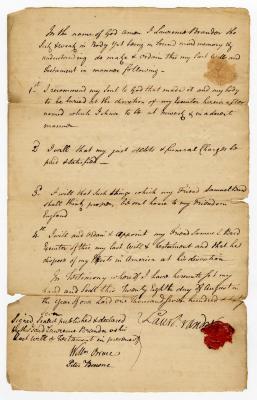 In the name of God Amen I Lawrence Brandon tho
Sick & weak in Body yet being in sound mind memory &
understanding do make & ordain this my last will and
testament in manner following.
1st I recommend my Soul to God that made it and my body
to be buried at the direction of my Executor herein after
named which I desire to be at Newark & in a decent
manner
2 I will that my just debts & funeral Charges be
paid & satisfied —
3d I will that such things which my Friend Samuel Bard
shall think proper, be sent home to my Friends in
England
4th I will and ordain & appoint my Friend Samuel Bard
Executor of this my last will & testament and that he
dispose of my Effects in America at his discretion
In Testimony whereof I have hereunto set my
hand and seal this Twenty eighth day of August in
the year of our Lord one thousand seven hundred &
Signed Sealed published & declared
by the said Lawrence Brandon as his
last will & testament in presence of
Willm Orme
Peter